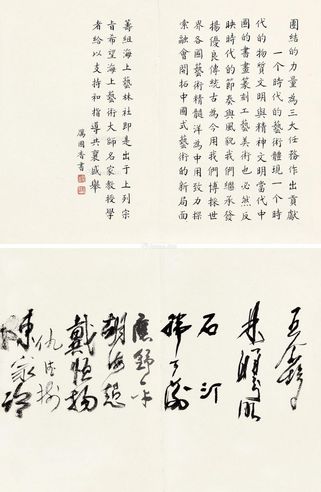 團結的力量為三大任務作出貢獻
一個時代的藝術體現一個時
代的物質文明與精神文明當代中
國的書畫篆刻工藝美術也必然反
映時代的節奏與風貌我們繼承發
揚優良傳統古為今用我們博採世
界各國藝術精髓洋為中用致力探
索融會開拓中國式藝術的新局面
籌組海上藝林社即是出于上列宗
旨希望海上藝術大師名家教授學
者給以支持和指導共襄盛舉
厲國香書
石汀
應野平
胡海超
戴恆揚
仇德樹
陳家泠